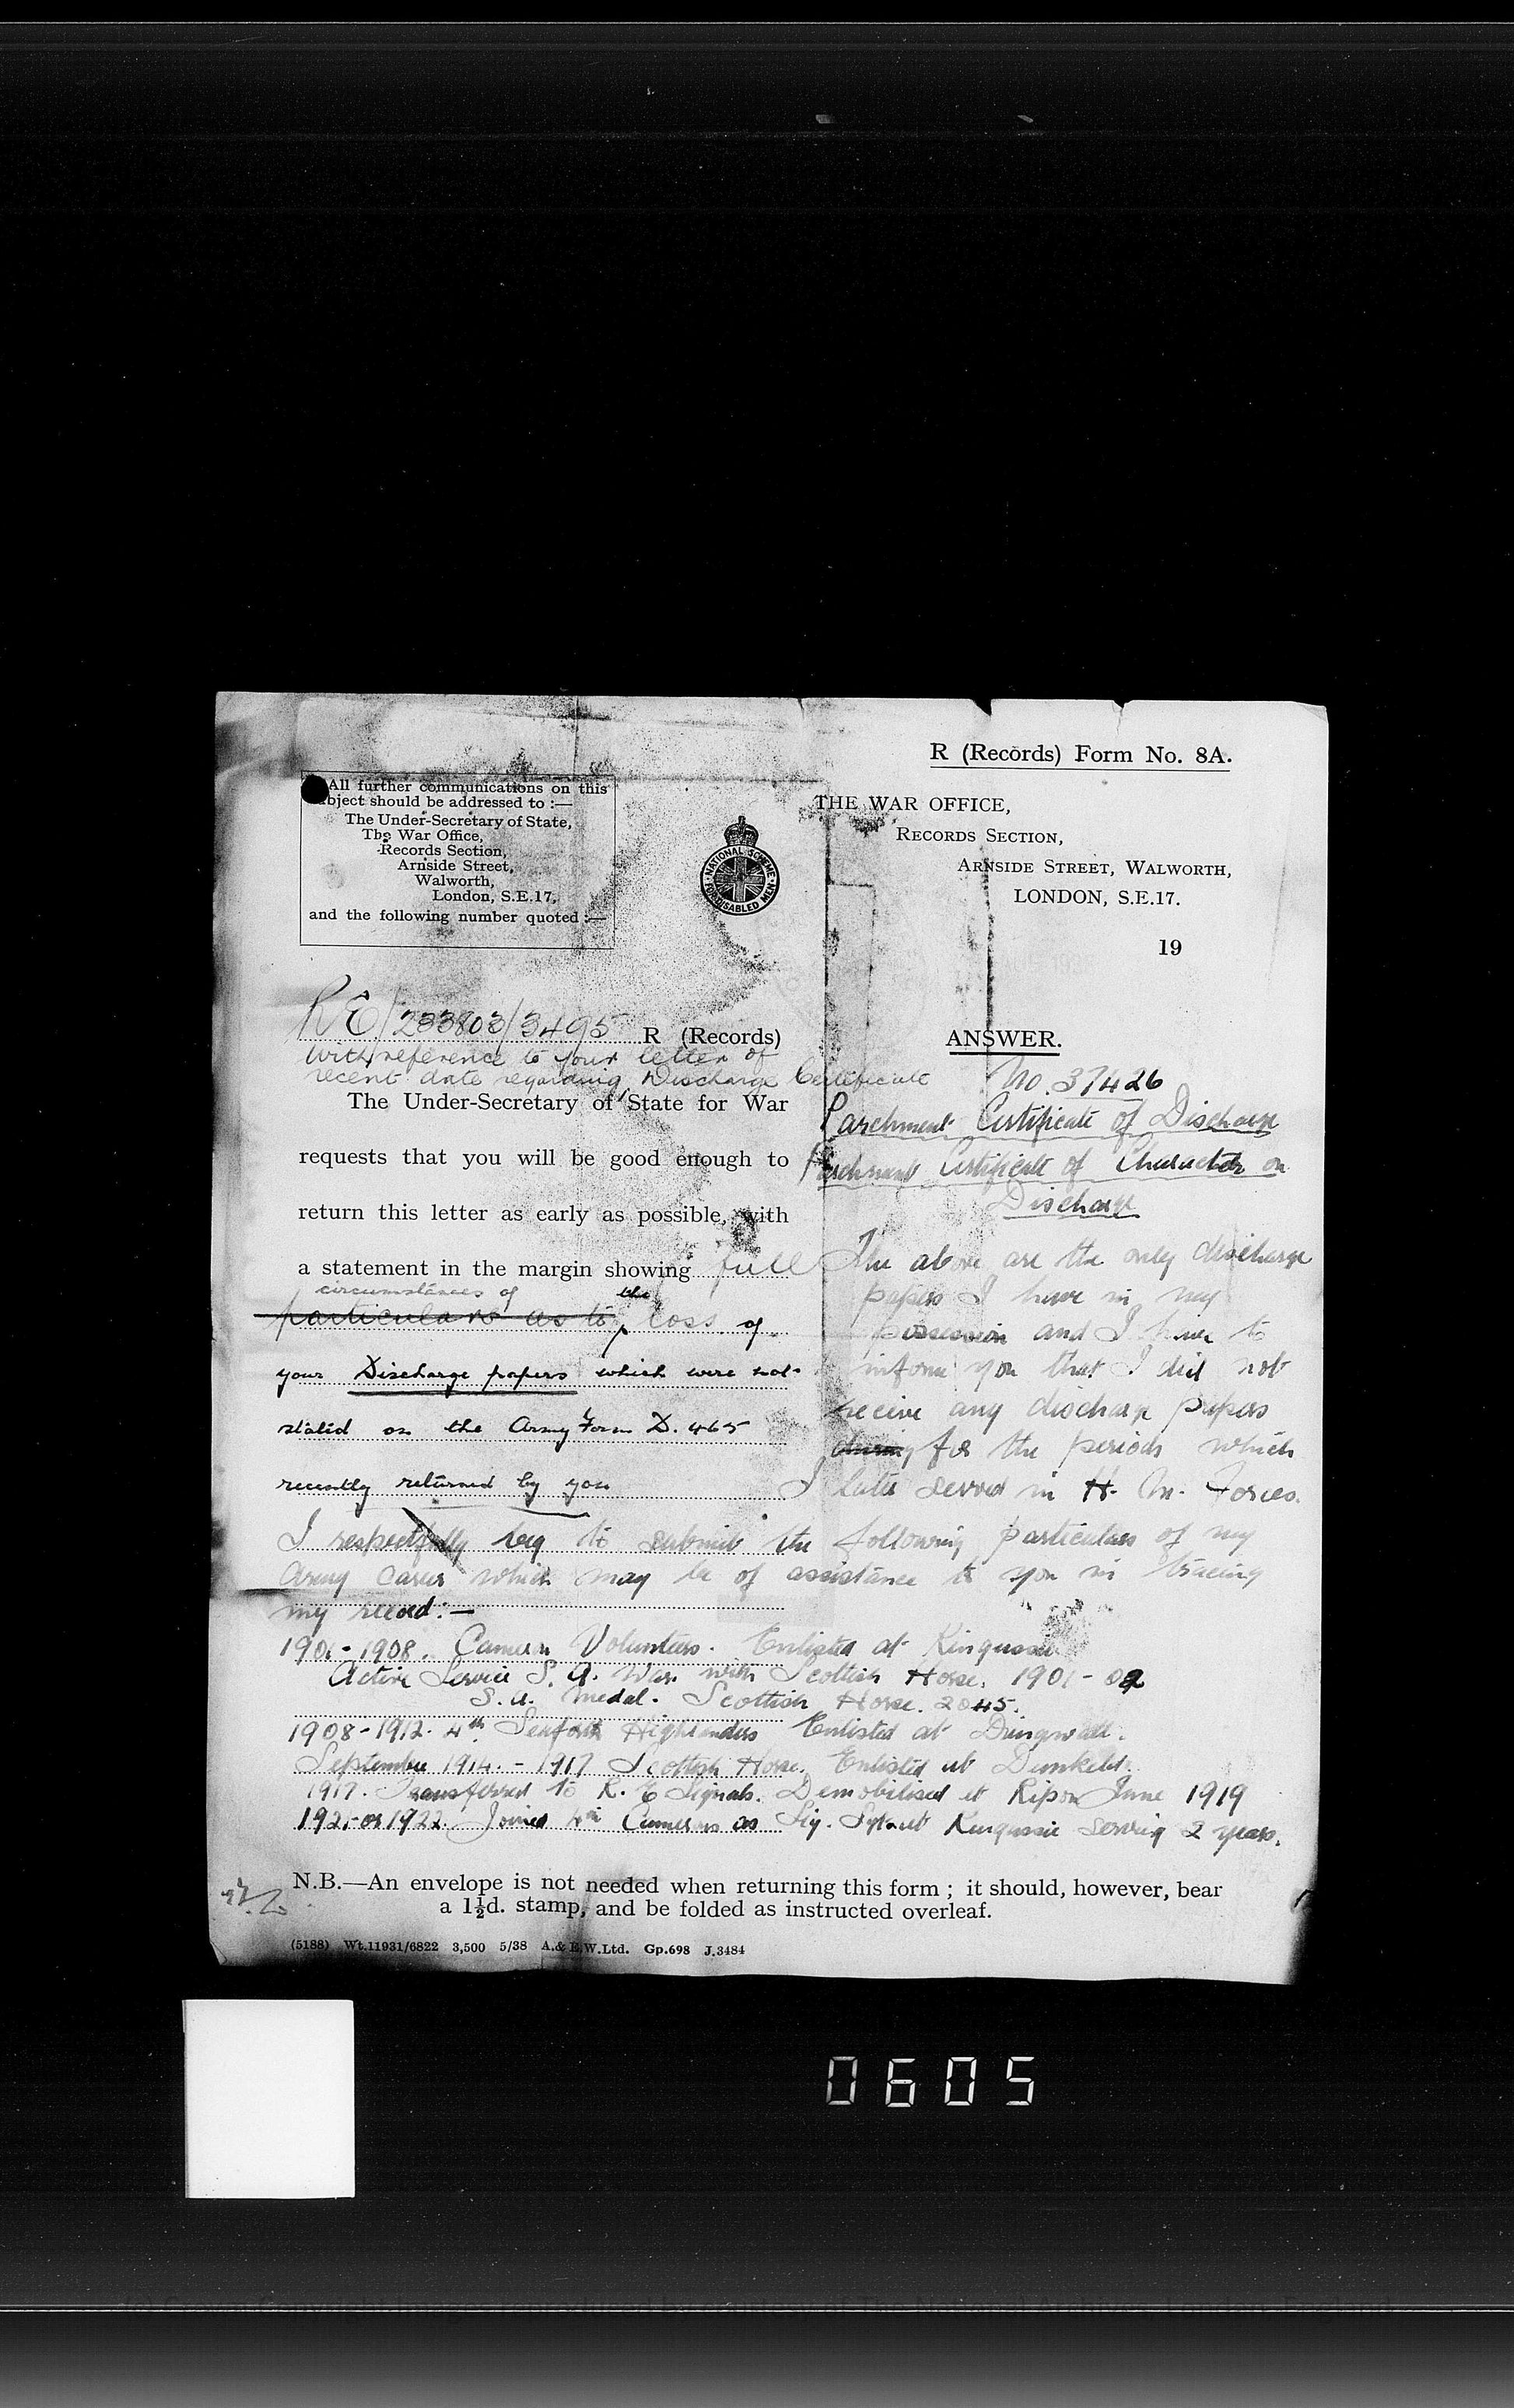 R (Records) Form No. 8A.
All further communications on this
subject should be addressed to :—
The Under-Secretary of State,
The War Office,
Records Section,
Arnside Street,
Walworth,
London, S.E.17,
and the following number quoted :—
NATIONAL SCHEME
FOR DISABLED MEN
THE WAR OFFICE,
RECORDS SECTION,
ARNSIDE STREET, WALWORTH,
LONDON, S.E.17.
19
RE/233803/3495 R (Records)
With reference to your letter of
recent date regarding Discharge Certificate
The Under-Secretary of State for War
requests that you will be good enough to
return this letter as early as possible, with
a statement in the margin showing full
circumstances of the
particulars as to loss of
your Discharge papers which were not
stated on the Army Form D. 465
recently returned by you
ANSWER.
No. 37426
Parchment Certificate of Discharge
Parchment Certificate of Character on
Discharge
The above are the only discharge
papers I have in my
possession and I have to
inform you that I did not
receive any discharge papers
during for the periods which
I later served in H. M. Forces.
I respectfully beg to submit the following particulars of my
Army Career which may be of assistance to you in tracing
my record:—
1901-1908. Cameron Volunteers. Enlisted at Kingussie
Active Service S. A. War with Scottish Horse. 1901-02
S. A. Medal. Scottish Horse. 2045.
1908-1912. 4th Seaforth Highlanders Enlisted at Dingwall.
September 1914. - 1917 Scottish Horse. Enlisted at Dunkeld.
1917. Transferred to R. E Signals. Demobilised at Ripon June 1919
1921 or 1922. Joined 4th Camerons as Sig. Sgt. at Kingussie serving 2 years.
N.B.—An envelope is not needed when returning this form ; it should, however, bear
a 1½d. stamp, and be folded as instructed overleaf.
(5188) Wt.11931/6822 3,500 5/38 A.& E.W.Ltd. Gp.698 J.3484
0605